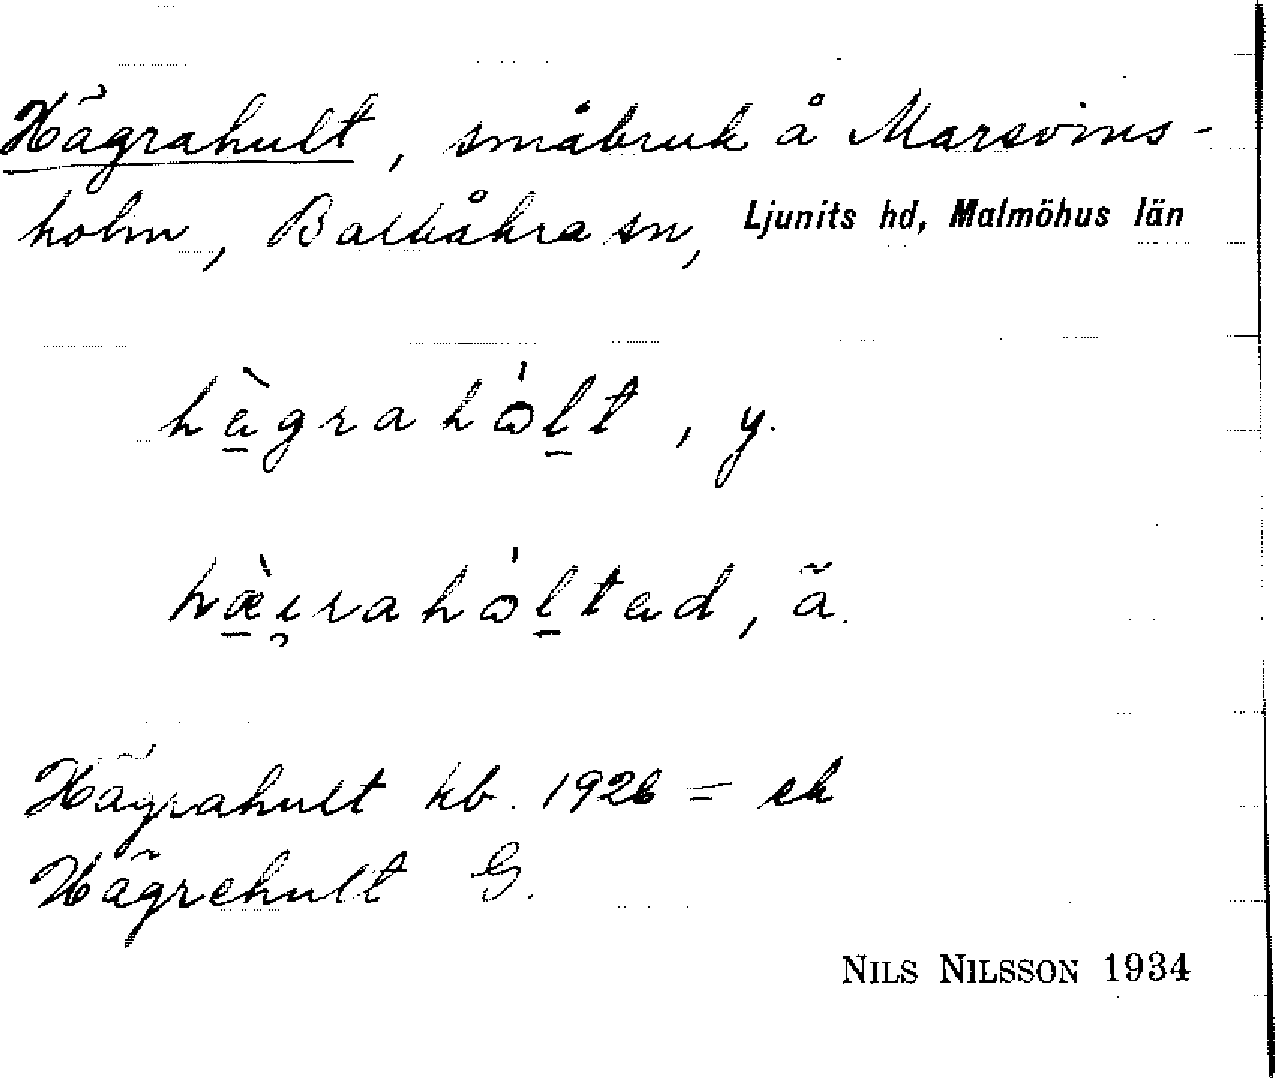 Hägrahult, småbruk å Marsvins-
holm, Balkåkra sn, Ljunits hd, Malmöhus län
hàgrahólt, y.
hæ̀i̯rahóltad, ä.
Hägrahult kb. 1926 = ek
Hägrehult G.
NILS NILSSON 1934